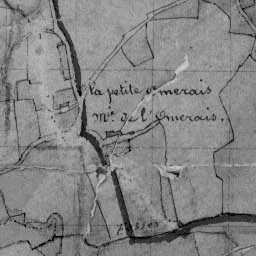 la petite Omerais
Mn. de l'Omerais.